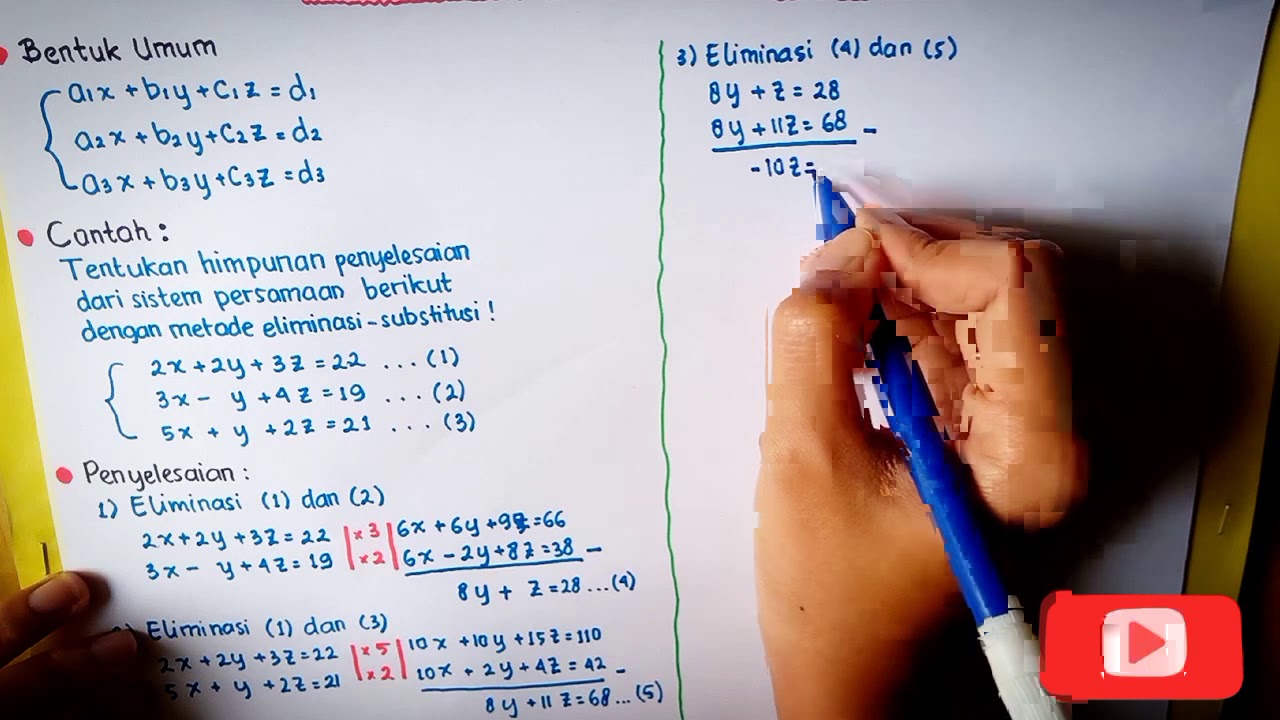 Bentuk Umum
a₁x + b₁y + c₁z = d₁
a₂x + b₂y + c₂z = d₂
a₃x + b₃y + c₃z = d₃
Contoh :
Tentukan himpunan penyelesaian
dari sistem persamaan berikut
dengan metode eliminasi-substitusi !
2x + 2y + 3z = 22 ... (1)
3x - y + 4z = 19 ... (2)
5x + y + 2z = 21 ... (3)
Penyelesaian :
1) Eliminasi (1) dan (2)
2x + 2y + 3z = 22 | x 3 | 6x + 6y + 9z = 66
3x - y + 4z = 19 | x 2 | 6x - 2y + 8z = 38 -
8y + z = 28 ... (4)
) Eliminasi (1) dan (3)
2x + 2y + 3z = 22 | x 5 | 10x + 10y + 15z = 110
5x + y + 2z = 21 | x 2 | 10x + 2y + 4z = 42 -
8y + 11z = 68 ... (5)
3) Eliminasi (4) dan (5)
8y + z = 28
8y + 11z = 68 -
-10z =